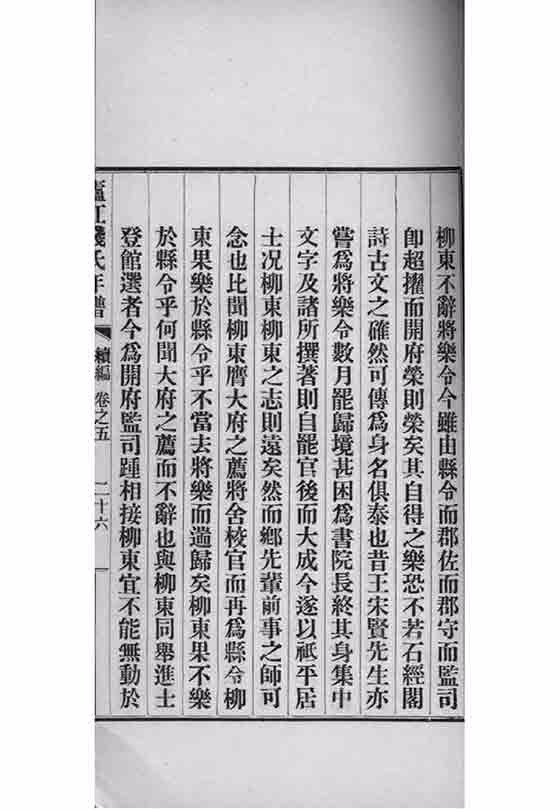 柳東不辭將樂令今雖由縣令而郡佐而郡守而監司
卽超擢而開府榮則榮矣其自得之樂恐不若石經閣
詩古文之確然可傳爲身名俱泰也昔王宋賢先生亦
嘗爲將樂令數月罷歸境甚困爲書院長終其身集中
文字及諸所撰著則自罷官後而大成今遂以祗平居
士况柳東柳東之志則遠矣然而鄕先輩前事之師可
念也比聞柳東膺大府之薦將舍校官而再爲縣令柳
東果樂於縣令乎不當去將樂而遄歸矣柳東果不樂
於縣令乎何聞大府之薦而不辭也與柳東同舉進士
登館選者今爲開府監司踵相接柳東宜不能無動於
廬江錢氏年譜 續編 卷之五 二十六